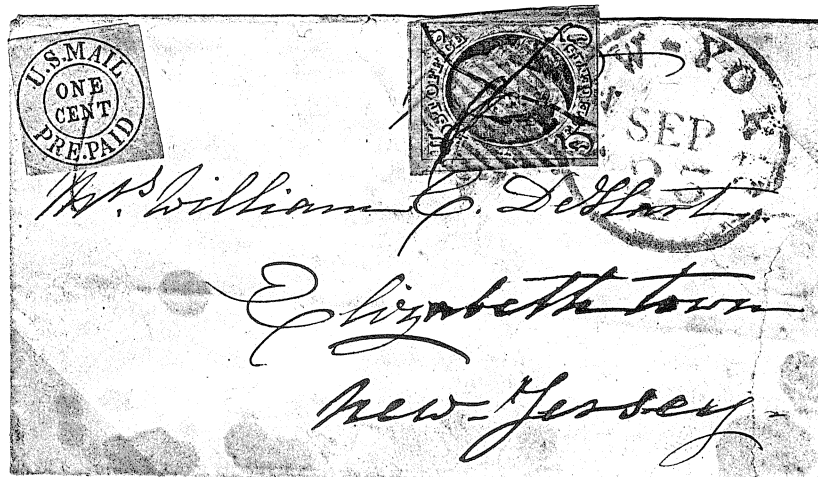 U.S. MAIL
ONE
CENT
PRE-PAID
POST OFFICE
NEW-YORK
SEP
25
Mrs. William C. DeHart
Elizabethtown
New-Jersey-